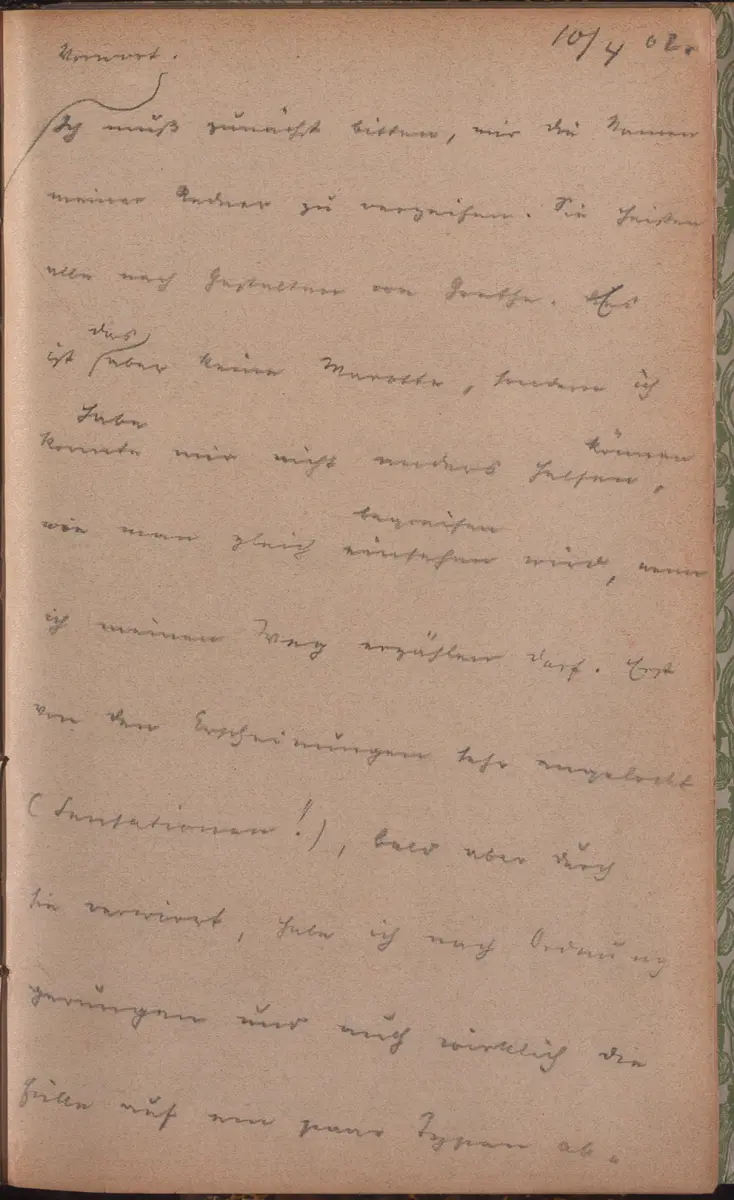 10/4 02.
Vorwort.
Ich muß zunächst bitten, mir die Namen
meiner Redner zu verzeihen. Sie heißen
alle nach Gestalten von Goethe. Es
das
ist aber keine Marotte, sondern ich
habe können
konnte mir nicht anders helfen,
begreifen
wie man gleich einsehen wird, wenn
ich meinen Weg erzählen darf. Erst
von den Erscheinungen sehr angelockt
(Sensationen!), bald aber durch
sie verwirrt, habe ich nach Ordnung
gerungen und auch wirklich die
Fülle auf ein paar Typen ab-